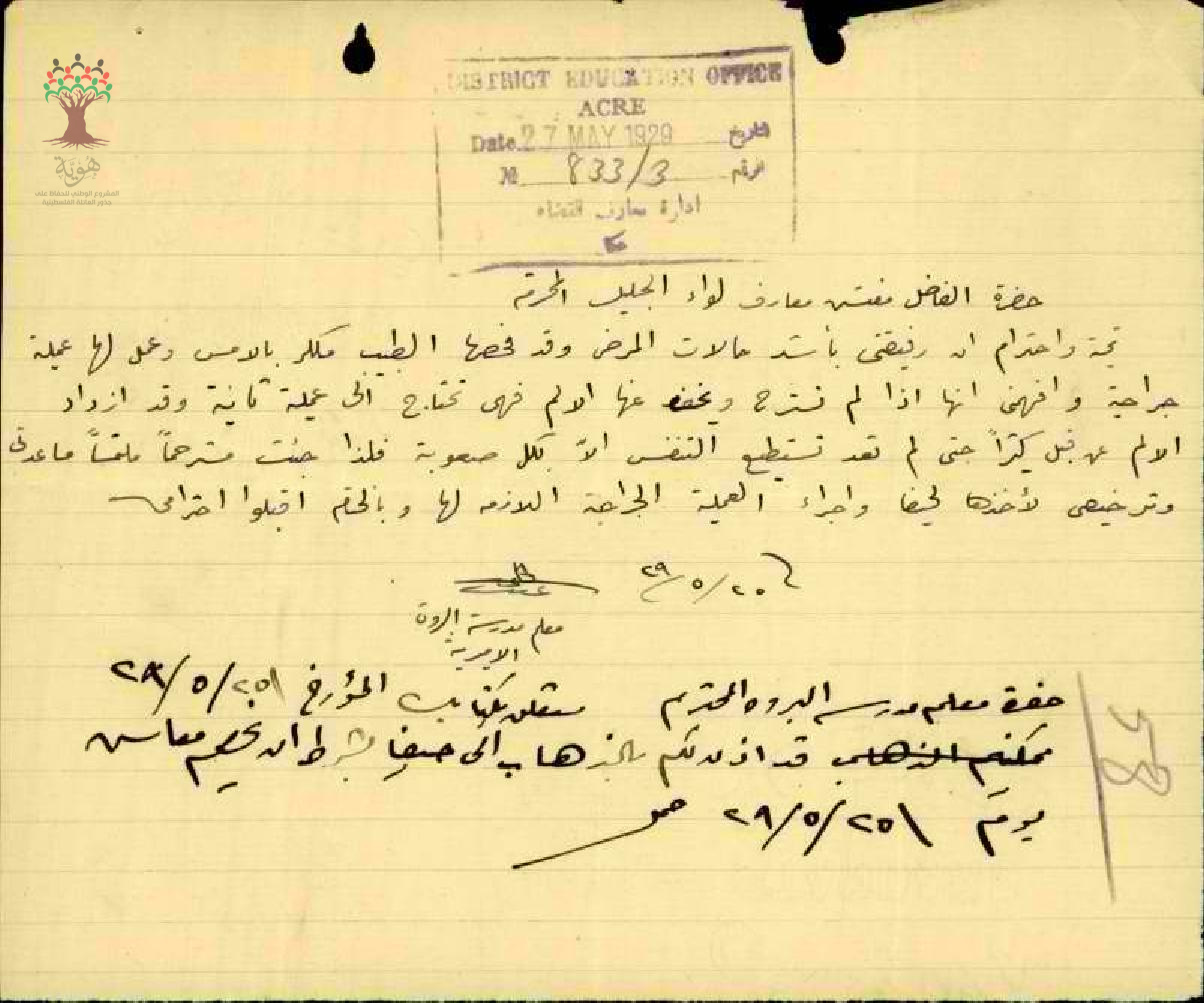 هُويَّة
المشروع الوطني للحفاظ على
جذور العائلة الفلسطينية
DISTRICT EDUCATION OFFICE
ACRE
Date 27 MAY 1929 التاريخ
№ 833/3 الرقم
ادارة معارف القضاء
عكا
حضرة الفاضل مفتش معارف لواء الجليل المحترم
تحية واحترام ان رفيقتي بأشد حالات المرض وقد فحصها الطبيب مكلر بالامس وعمل لها عملية
جراحية وافهمني انها اذا لم تسترح ويخف عنها الالم فهي تحتاج الى عملية ثانية وقد ازداد
الالم عن قبل كثيراً حتى لم تعد تستطيع التنفس الاّ بكل صعوبة فلذا جئت مسترحماً ملتمساً مساعدتي
وترخيصي لأخذها لحيفا واجراء العملية الجراحية اللازمه لها وبالختام اقبلوا احترامي
٢٥/٥/٢٩
معلم مدرسة البروة
الاميرية
حضرة معلم مدرسة البروه المحترم متعلق بكتابكم المؤرخ ٢٥/٥/٢٩
قد اذن لكم بالذهاب الى حيفا بشرط ان يحسم معاش
يوم ٢٥/٥/٢٩